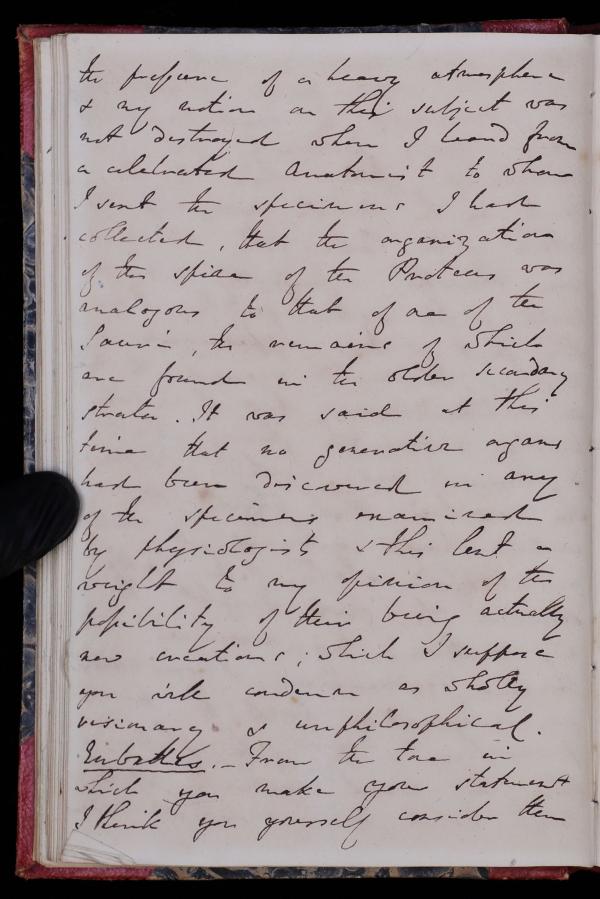 the pressure of a heavy atmosphere
& my notion on this subject was
not destroyed when I heard from
a celebrated Anatomist to whom
I sent the specimens I had
collected, that the organization
of the spine of the Proteus was
analogous to that of one of the
Sauria, the remains of which
are found in the older secondary
strata. It was said at this
time that no generative organs
had been discovered in any
of the specimens examined
by physiologists & this lent a
weight to my opinion of the
possibility of their being actually
new creations; which I suppose
you will condemn as wholly
visionary & unphilosophical.
Eubathes. - From the tone in
which you make your statement
I think you yourself consider them